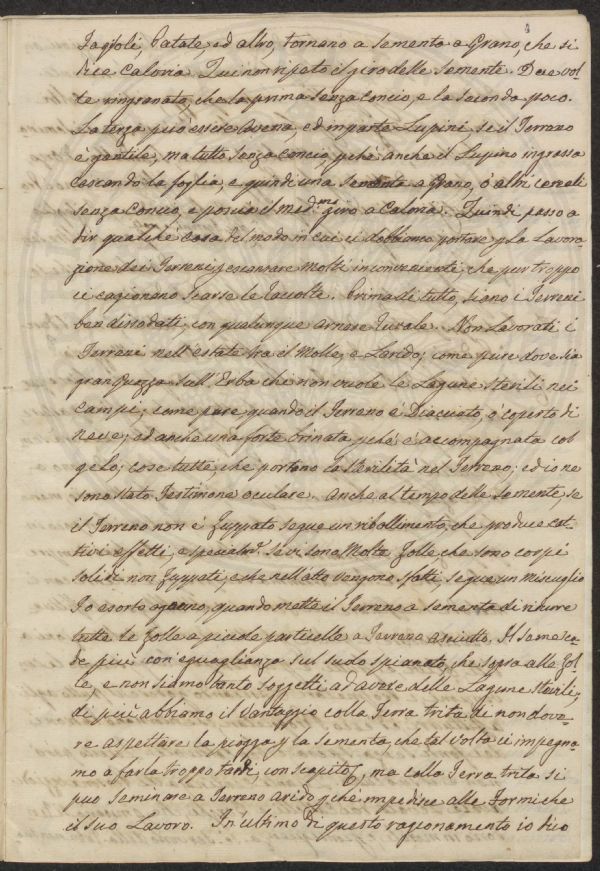 Fagioli, Patate, ed altro, tornano a sementa a Grano, che si
dice Caloria. Qui non ripeto il giro delle semente. Due vol-
te ringranato, che la prima senza concio, e la seconda poco.
La terza può essere Avena, ed in parte Lupini, se il Terreno
è gentile, ma tutto senza concio, pchè anche il Lupino ingrassa
cascando la foglia, e quindi una sementa a Grano, o' altri cereali
senza Concio, e poscia il med.mo giro a Caloria. Quindi passo a
dir qualche cosa del modo in cui ci dobbiamo portare p la Lavora-
zione dei Terreni, p scanzare molti inconvenienti, che pur troppo
ci cagionano scarse le raccolte. Prima di tutto, siano i Terreni
ben dissodati, con qualunque arnese Rurale. Non Lavorati i
Terreni nell'estate tra il Molle, e L'arido; come pure dove sia
gran Guazza sull'Erba che non vuole le Lagune sterili nei
campi; come pure quando il Terreno è Diacciato, o' coperto di
neve; ed anche una forte brinata pchè è accompagnata col
gelo; cose tutte, che portano la sterilità nel Terreno; ed io ne
sono stato Testimone oculare. Anche al tempo delle semente, se
il Terreno non è Zuppato segue un ribollimento, che produce cat-
tivi effetti, e specialm. se vi sono Molte Zolle che sono corpi
solidi non Zuppati, e che nell'atto vengono sfatti, segue un miscuglio
Io esorto ognuno, quando mette il Terreno a sementa di ridurre
tutte le Zolle a piccole particelle a Terreno asciutto. Il seme ca-
de più con eguaglianza sul suolo spianato, che sopra alle Zol-
le, e non siamo tanto soggetti ad avere delle Lagune sterili;
di più abbiamo il vantaggio colla Terra trita di non dove-
re aspettare la pioggia p la sementa, che tal volta ci impegna-
mo a farla troppo tardi, con scapito, ma colla Terra trita si
può seminare a Terreno arido, pchè impedisce alle Formiche
il suo Lavoro. In ultimo di questo ragionamento io dico